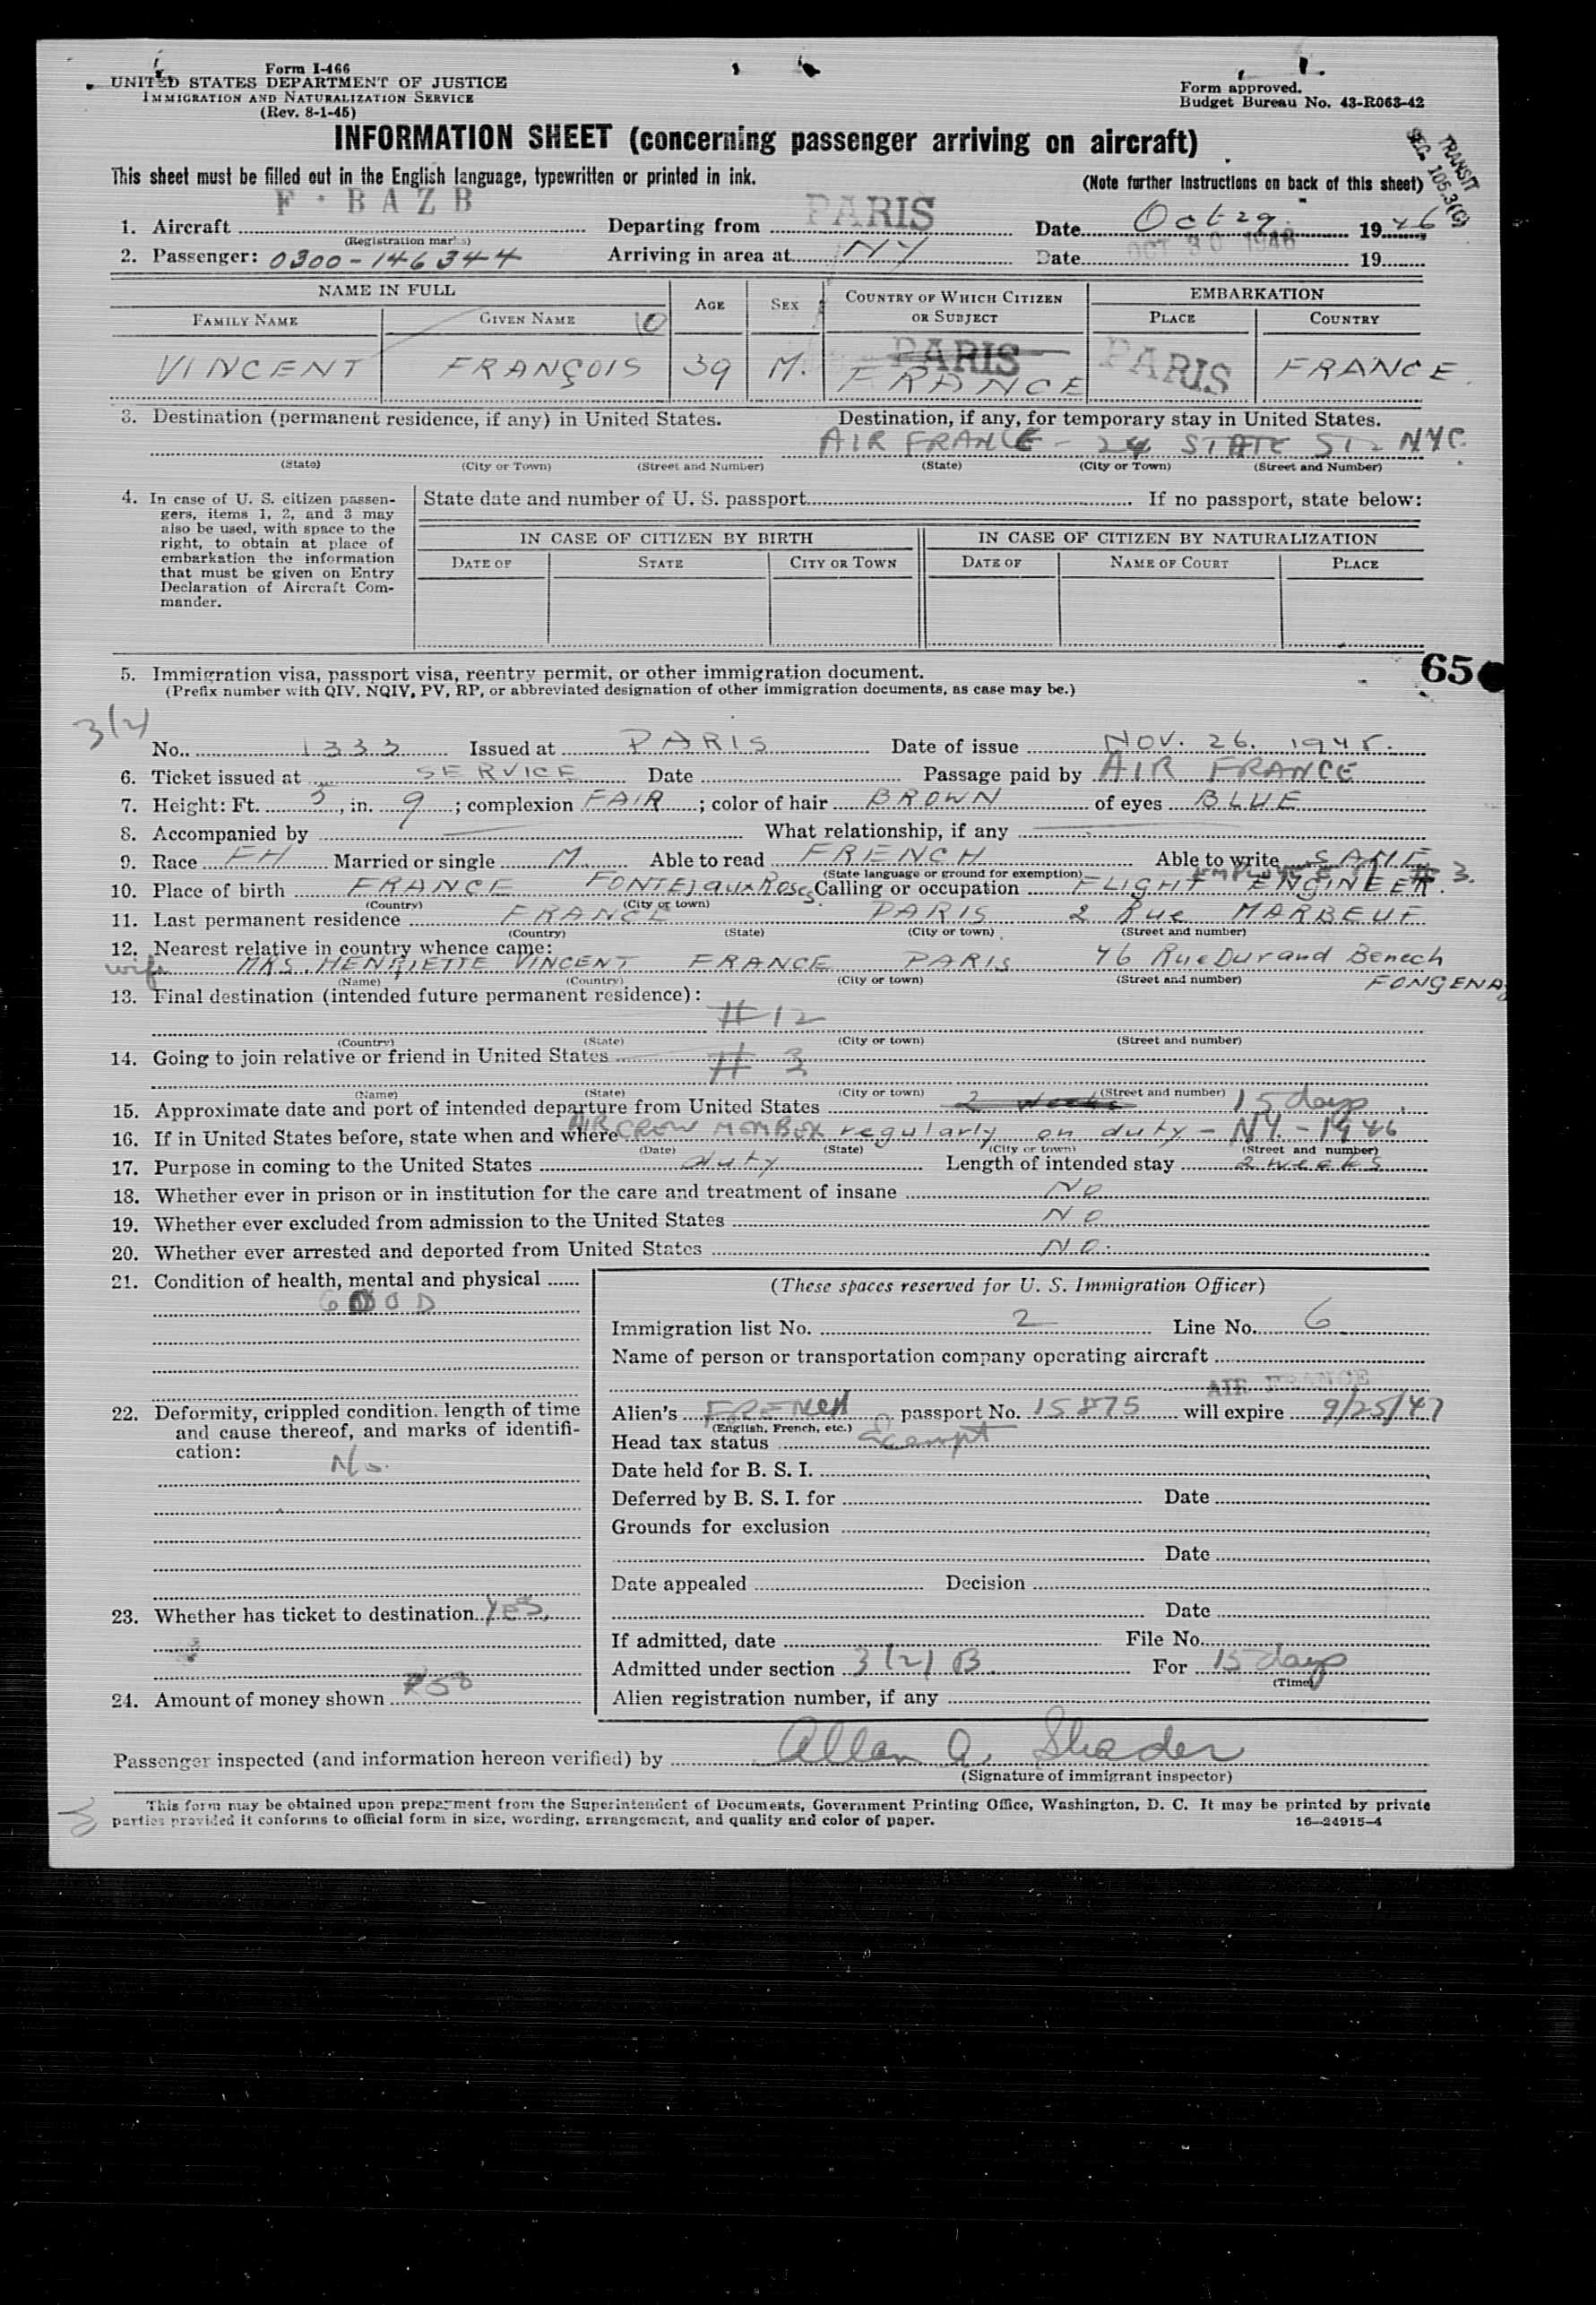 Form I-466
UNITED STATES DEPARTMENT OF JUSTICE
IMMIGRATION AND NATURALIZATION SERVICE
(Rev. 8-1-45)
Form approved.
Budget Bureau No. 43-R063-42
INFORMATION SHEET (concerning passenger arriving on aircraft)
TRANSIT
SEC. 105.3(C)
This sheet must be filled out in the English language, typewritten or printed in ink. (Note further instructions on back of this sheet)
1. Aircraft F·BAZB Departing from PARIS Date Oct 29 1946
(Registration marks)
2. Passenger: 0300-146344 Arriving in area at NY Date OCT 30 1946 19
NAME IN FULL AGE SEX COUNTRY OF WHICH CITIZEN OR SUBJECT EMBARKATION
FAMILY NAME GIVEN NAME 10 PLACE COUNTRY
VINCENT FRANÇOIS 39 M. PARIS FRANCE PARIS FRANCE
3. Destination (permanent residence, if any) in United States. Destination, if any, for temporary stay in United States.
AIR FRANCE - 24 STATE ST - NYC.
(State) (City or Town) (Street and Number) (State) (City or Town) (Street and Number)
4. In case of U. S. citizen passen-
gers, items 1, 2, and 3 may
also be used, with space to the
right, to obtain at place of
embarkation the information
that must be given on Entry
Declaration of Aircraft Com-
mander.
State date and number of U. S. passport If no passport, state below:
IN CASE OF CITIZEN BY BIRTH IN CASE OF CITIZEN BY NATURALIZATION
DATE OF STATE CITY OR TOWN DATE OF NAME OF COURT PLACE
65
5. Immigration visa, passport visa, reentry permit, or other immigration document.
(Prefix number with QIV, NQIV, PV, RP, or abbreviated designation of other immigration documents, as case may be.)
3(2)
No. 1333 Issued at PARIS Date of issue NOV. 26. 1945.
6. Ticket issued at SERVICE Date Passage paid by AIR FRANCE
7. Height: Ft. 5, in. 9; complexion FAIR; color of hair BROWN of eyes BLUE
8. Accompanied by What relationship, if any
9. Race FH Married or single M Able to read FRENCH Able to write SAME
(State language or ground for exemption) EMPLOYEE # 3.
10. Place of birth FRANCE FONTEJ aux Roses Calling or occupation FLIGHT ENGINEER.
(Country) (City or town)
11. Last permanent residence FRANCE PARIS 2 Rue MARBEUF
(Country) (State) (City or town) (Street and number)
12. Nearest relative in country whence came:
wife MRS. HENRIETTE VINCENT FRANCE PARIS 46 Rue Durand Benech
(Name) (Country) (City or town) (Street and number)
13. Final destination (intended future permanent residence):
# 12
(Country) (State) (City or town) (Street and number)
14. Going to join relative or friend in United States
# 3
(Name) (State) (City or town) (Street and number)
15. Approximate date and port of intended departure from United States 2 weeks 15 days
16. If in United States before, state when and where AIR CREW MEMBER regularly on duty - NY. - 1946
(Date) (State) (City or town) (Street and number)
17. Purpose in coming to the United States duty Length of intended stay 2 weeks
18. Whether ever in prison or in institution for the care and treatment of insane No
19. Whether ever excluded from admission to the United States NO
20. Whether ever arrested and deported from United States NO.
21. Condition of health, mental and physical
GOOD
22. Deformity, crippled condition. length of time
and cause thereof, and marks of identifi-
cation:
No.
23. Whether has ticket to destination YES,
24. Amount of money shown $50
(These spaces reserved for U. S. Immigration Officer)
Immigration list No. 2 Line No. 6
Name of person or transportation company operating aircraft
AIR FRANCE
Alien's FRENCH passport No. 15875 will expire 9/25/47
(English, French, etc.)
Head tax status Exempt
Date held for B. S. I.
Deferred by B. S. I. for Date
Grounds for exclusion
Date
Date appealed Decision
Date
If admitted, date File No.
Admitted under section 3(2) B. For 15 days
(Time)
Alien registration number, if any
Passenger inspected (and information hereon verified) by Allan A. Shader
(Signature of immigrant inspector)
This form may be obtained upon prepayment from the Superintendent of Documents, Government Printing Office, Washington, D. C. It may be printed by private
parties provided it conforms to official form in size, wording, arrangement, and quality and color of paper. 16—24915-4